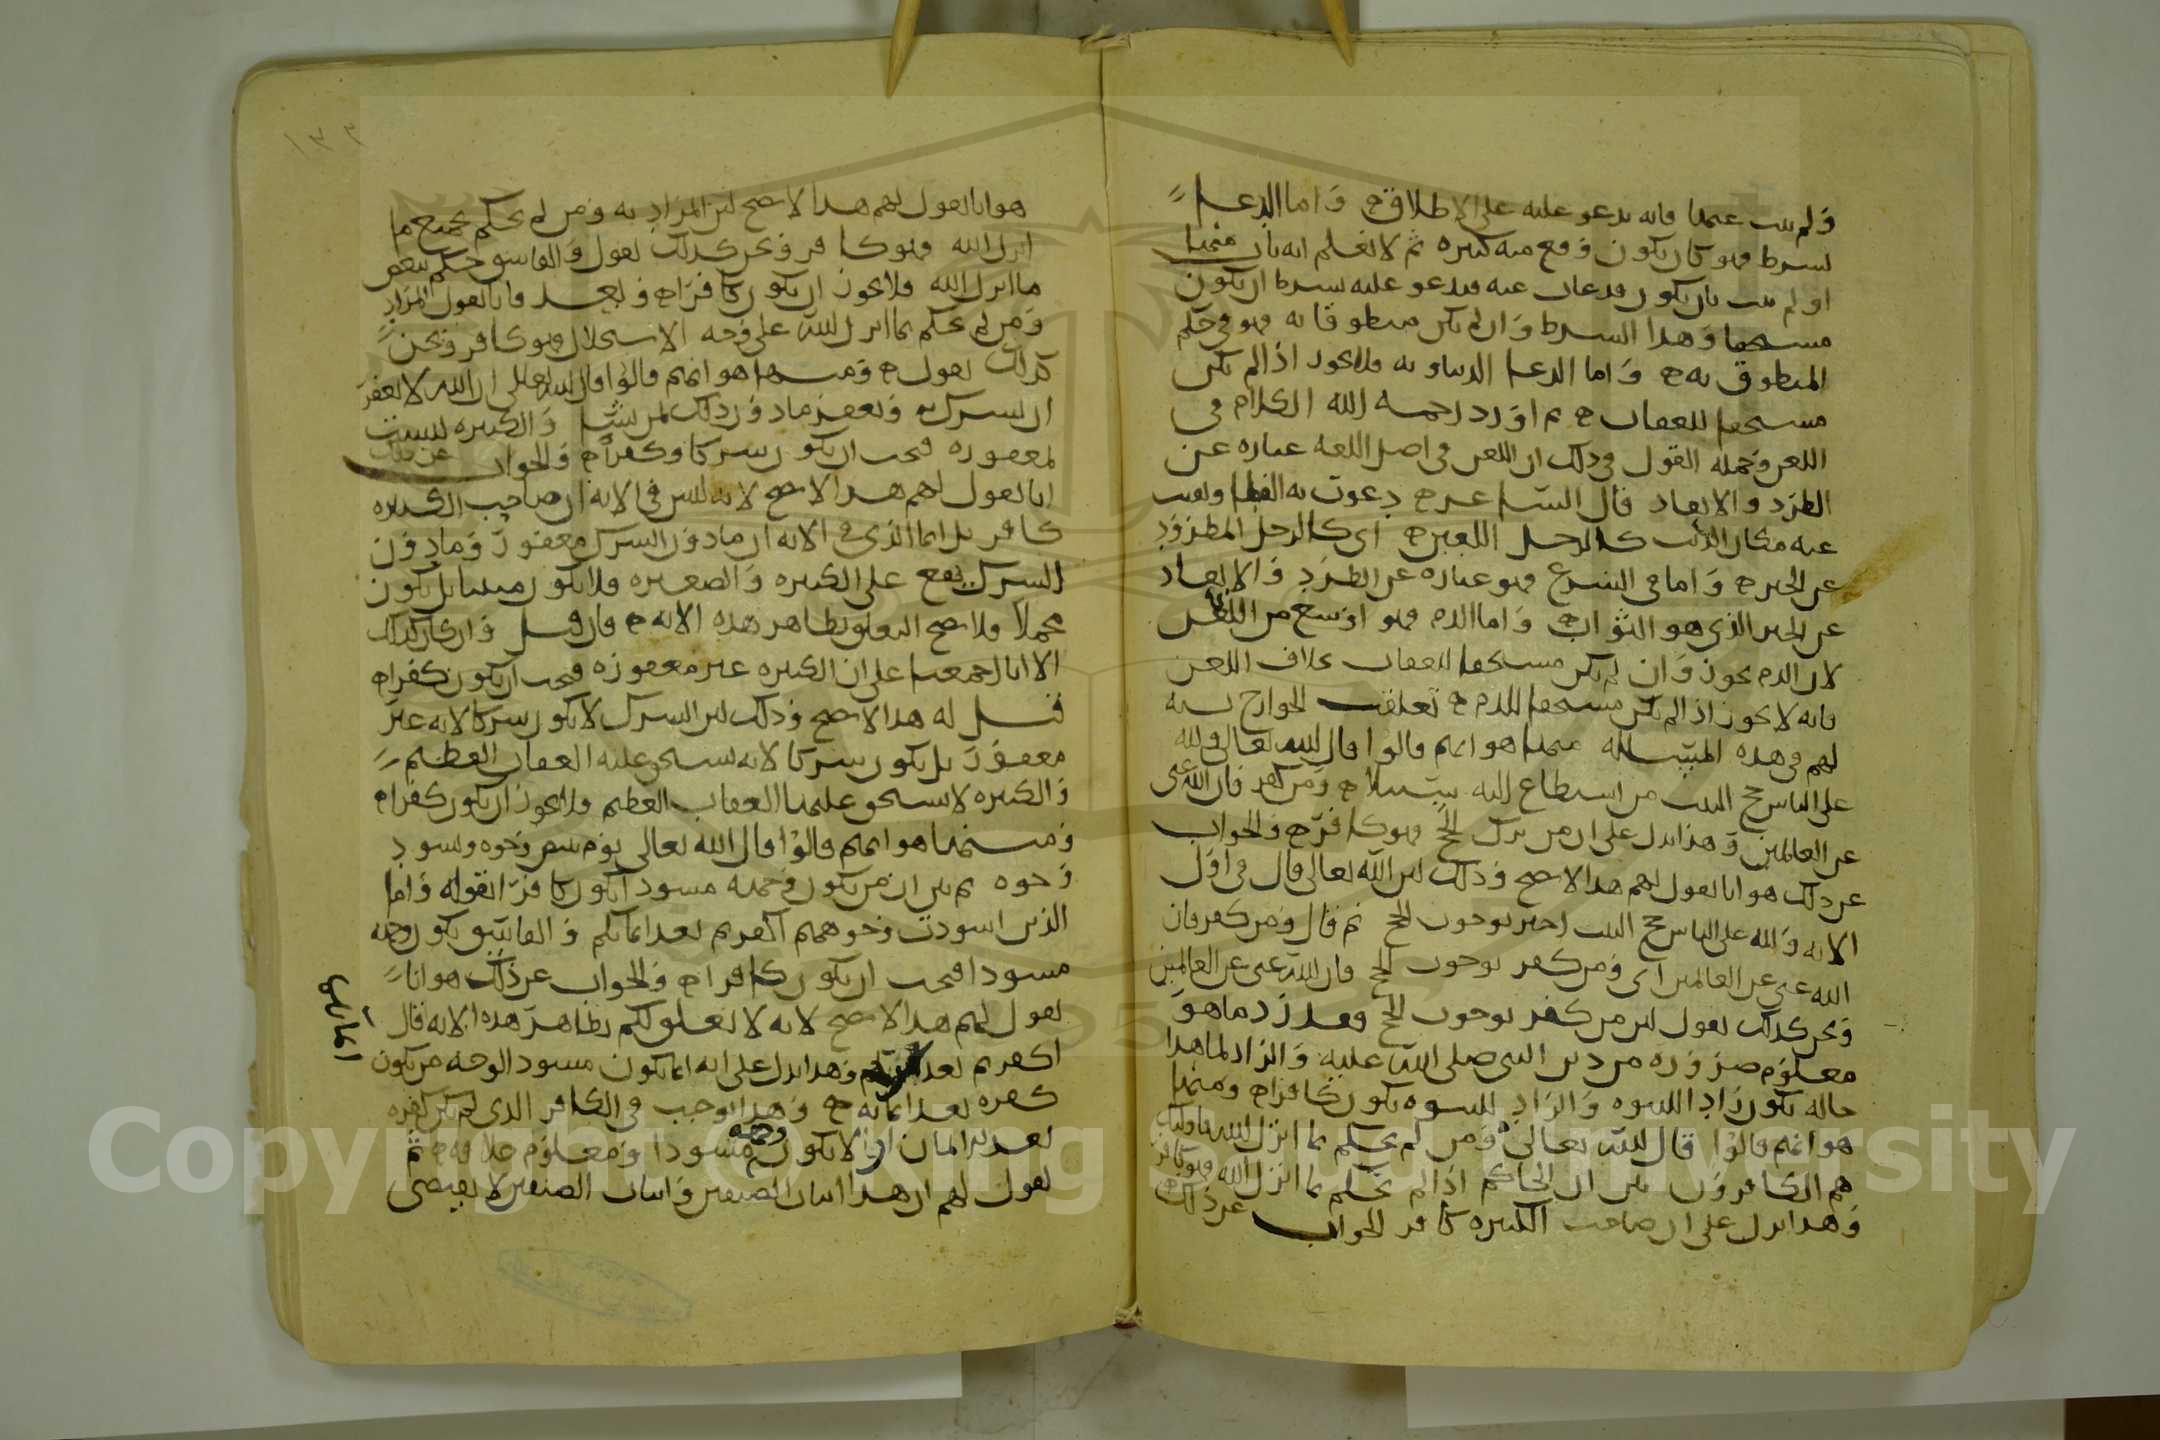 ولم يتب عنها فانه يدعو عليه على الاطلاق واما الدعا
بشرط فهو كان يكون وقع منه كبيره ثم لا نعلم انه تاب منها
او لم يتب بان يكون قد غاب عنه فيدعو عليه بشرط ان يكون
مستحقا وهذا الشرط وان لم يكن منطوقا به فهو في حكم
المنطوق به واما الدعا الدنياويه فلا يجوز اذا لم يكن
مستحقا للعقاب ثم اورد رحمه الله الكلام في
اللعن وجمله القول في ذلك ان اللعن في اصل اللغه عباره عن
الطرد والابعاد قال الشاعر ذعرت به القطا ونفيت
عنه مكان الذئب كالرجل اللعين اى كالرجل المطرود
عن الخير واما في الشرع فهو عباره عن الطرد والابعاد
عن الخير الذي هو الثواب واما الذم فهو اوسع من اللعن
لان الذم يجوز وان لم يكن مستحقا للعقاب بخلاف اللعن
فانه لا يجوز اذا لم يكن مستحقا للذم تعلقت الخوارج بشبه
لهم في هذه المسئله منها هو انهم قالوا قال الله تعالى ولله
على الناس حج البيت من استطاع اليه سبيلا ومن كفر فان الله غنى
عن العالمين وهذا يدل على ان من ترك الحج فهو كافر والجواب
عن ذلك هو انا نقول لهم هذا لا يصح وذلك لان الله تعالى قال في اول
الايه ولله على الناس حج البيت اخبر بوجوب الحج ثم قال ومن كفر فان
الله غني عن العالمين اى ومن كفر بوجوب الحج فان الله غنى عن العالمين
ونحن كذلك نقول لان من كفر بوجوب الحج فقد رد ما هو
معلوم ضروره من دين النبى صلى الله عليه والراد لما هذا
حاله يكون رادا للنبوه والراد للنبوه يكون كافرا ومنها
هو انهم قالوا قال الله تعالى ومن لم يحكم بما انزل الله فاوليك
هم الكافرون بين ان الحاكم اذا لم يحكم بما انزل الله فهو كافر
وهذا يدل على ان صاحب الكبيره كافر الجواب عن ذلك
هو انا نقول لهم هذا لا يصح لان المراد به ومن لم يحكم بجميع ما
انزل الله فهو كافر ونحن كذلك نقول والفاسق حكم ببعض
ما انزل الله فلا يجوز ان يكون كافرا وبعد فانا نقول المراد
ومن لم يحكم بما انزل الله على وجه الاستحلال فهو كافر ونحن
كذلك نقول ومنها هو انهم قالوا قال الله تعالى ان الله لا يغفر
ان يشرك به ويغفر ما دون ذلك لمن يشا والكبيره ليست
بمغفوره فيجب ان يكون شركا وكفرا والجواب عن ذلك
انا نقول لهم هذا لا يصح لانه ليس في الايه ان صاحب الكبيره
كافر بل انما الذي في الايه ان ما دون الشرك مغفور وما دون
الشرك يقع على الكبيره والصغيره فلا يكون مبينا بل يكون
مجملا ولا يصح التعلق بظاهر هذه الايه فان قيل وان كان كذلك
الا انا اجمعنا على ان الكبيره غير مغفوره فيجب ان يكون كفرا
قيل له هذا لا يصح وذلك لان الشرك لا يكون شركا لانه غير
مغفور بل يكون شركا لانه يستحق عليه العقاب العظيم
والكبيره لا يستحق عليها العقاب العظيم فلا يجوز ان يكون كفرا
ومنها هو انهم قالوا قال الله تعالى يوم تبيض وجوه وتسود
وجوه ثم بين ان من يكون وجهه مسودا يكون كافرا لقوله واما
الذين اسودت وجوههم اكفرتم بعد ايمانكم والفاسق يكون وجهه
مسودا فيجب ان يكون كافرا والجواب عن ذلك هو انا
نقول لهم هذا لا يصح لانه لا تعلق لكم بظاهر هذه الايه لانه قال
اكفرتم بعد وهذا يدل على انه انما يكون مسود الوجه من يكون
كفره بعد ايمانه وهذا يوجب في الكافر الذي لم يكن كفره
بعد الايمان ان لا يكون وجهه مسودا ومعلوم خلافه ثم
نقول لهم ان هذا اثبات الصنفين واثبات الصنفين لا يقتضى
ايمانكم